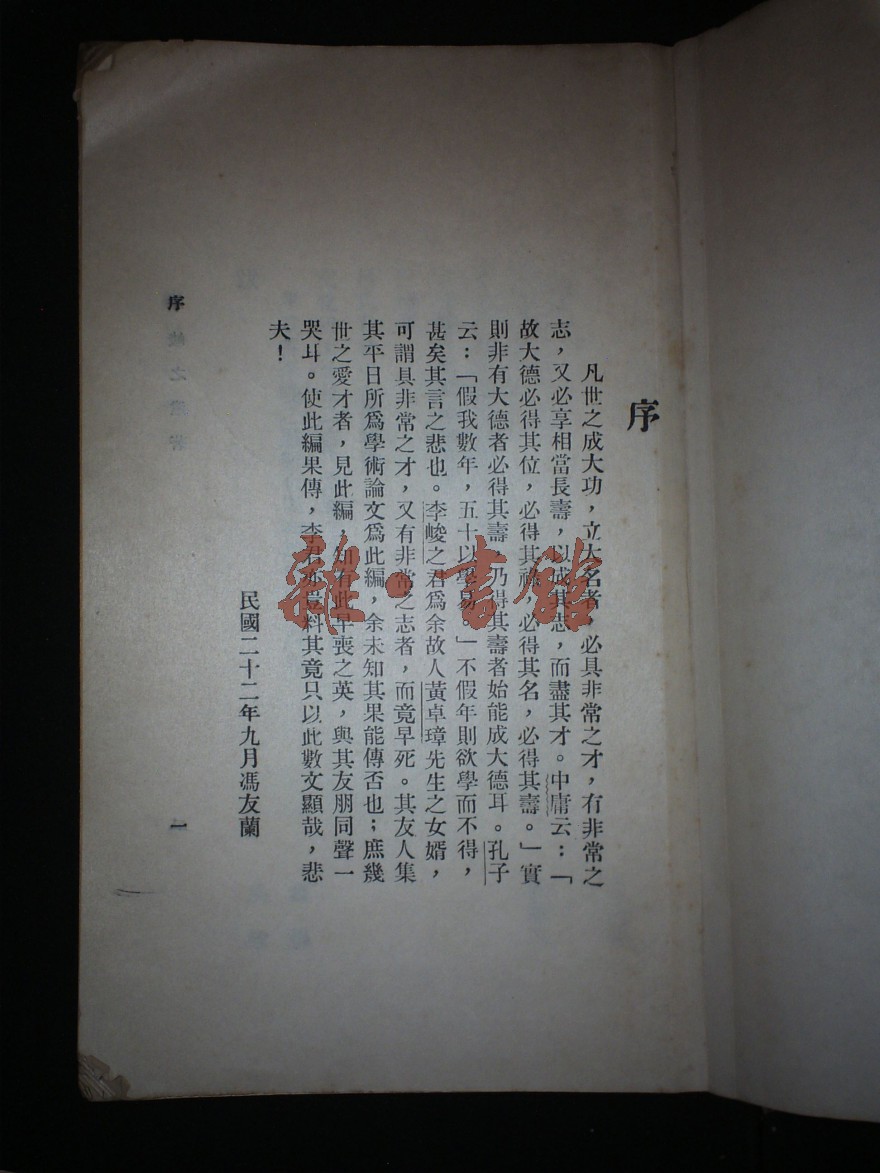 序
凡世之成大功，立大名者，必具非常之才，有非常之
志，又必享相當長壽，以成其志，而盡其才。中庸云：「
故大德必得其位，必得其祿，必得其名，必得其壽。」實
則非有大德者必得其壽，乃得其壽者始能成大德耳。孔子
云：「假我數年，五十以學易。」不假年則欲學而不得，
甚矣其言之悲也。李峻之君爲余故人黃卓璋先生之女婿，
可謂具非常之才，又有非常之志者，而竟早死。其友人集
其平日所爲學術論文爲此編，余未知其果能傳否也；庶幾
世之愛才者，見此編，知有此早喪之英，與其友朋同聲一
哭斗。使此編果傳，李君亦豈料其竟只以此數文顯哉，悲
夫！
民國二十二年九月馮友蘭
序
一
雜·書館